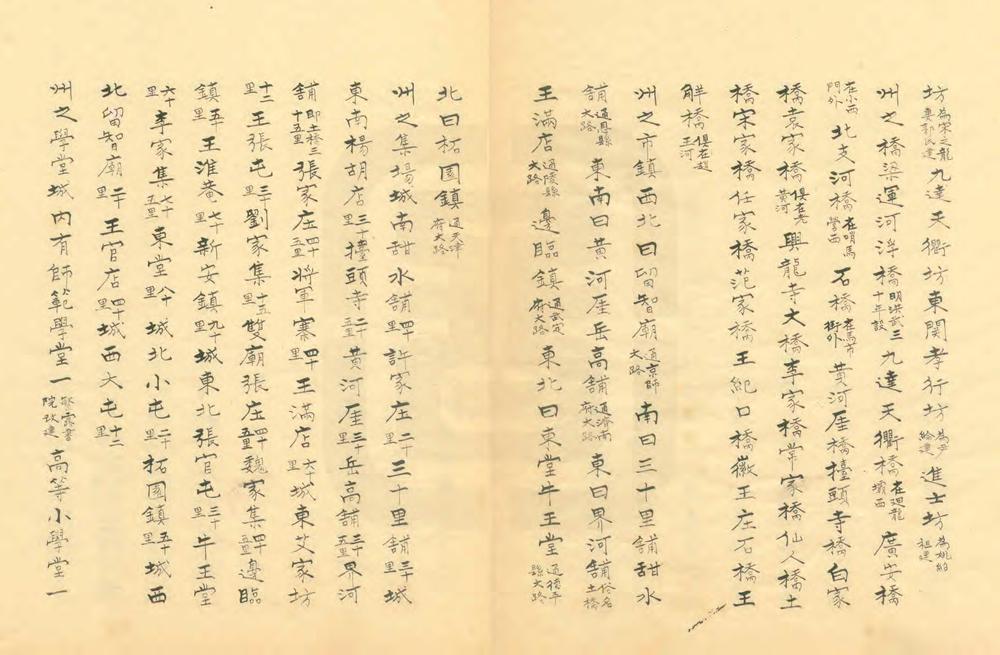 坊為宋之龍妻郭氏建九達天衢坊東関孝行坊為尹給建進士坊為姚約祖建
州之橋梁運河浮橋明洪武三十年設九達天衢橋在廻龍壩西廣安橋
在小西門外北支河橋在哨馬營西石橋在馬市街外黄河厓橋擡頭寺橋白家
橋袁家橋俱在老黄河興龍寺大橋李家橋常家橋仙人橋土
橋宋家橋任家橋范家橋王紀口橋徽王庄石橋王
觧橋俱在趙王河
州之市鎮西北曰留智廟道京師大路南曰三十里舖甜水
舖通恩縣大路東南曰黄河厓岳高舖通濟南府大路東曰界河舖俗名土橋
王滿店通陵縣大路邊臨鎮通武定府大路東北曰東堂牛王堂通德平縣大路
北曰柘園鎮通天津府大路
州之集塲城南甜水舖四十里許家庄二十里三十里舖三十里城
東南楊胡店三十里擡頭寺二十五里黄河厓三十里岳高舖三十五里界河
舖即土橋三十五里張家庄四十五里將軍寨四十里王滿店六十里城東艾家坊
十二里王張屯三十里劉家集十五里雙廟張庄四十五里魏家集四十五里邊臨
鎮五十里王淮菴七十里新安鎮九十里城東北張官屯三十里牛王堂
六十里李家集七十五里東堂八十里城北小屯二十里柘園鎮五十里城西
北留智廟二十里王官店四十里城西大屯十二里
州之學堂城内有師範學堂一繁露書院改建高等小學堂一